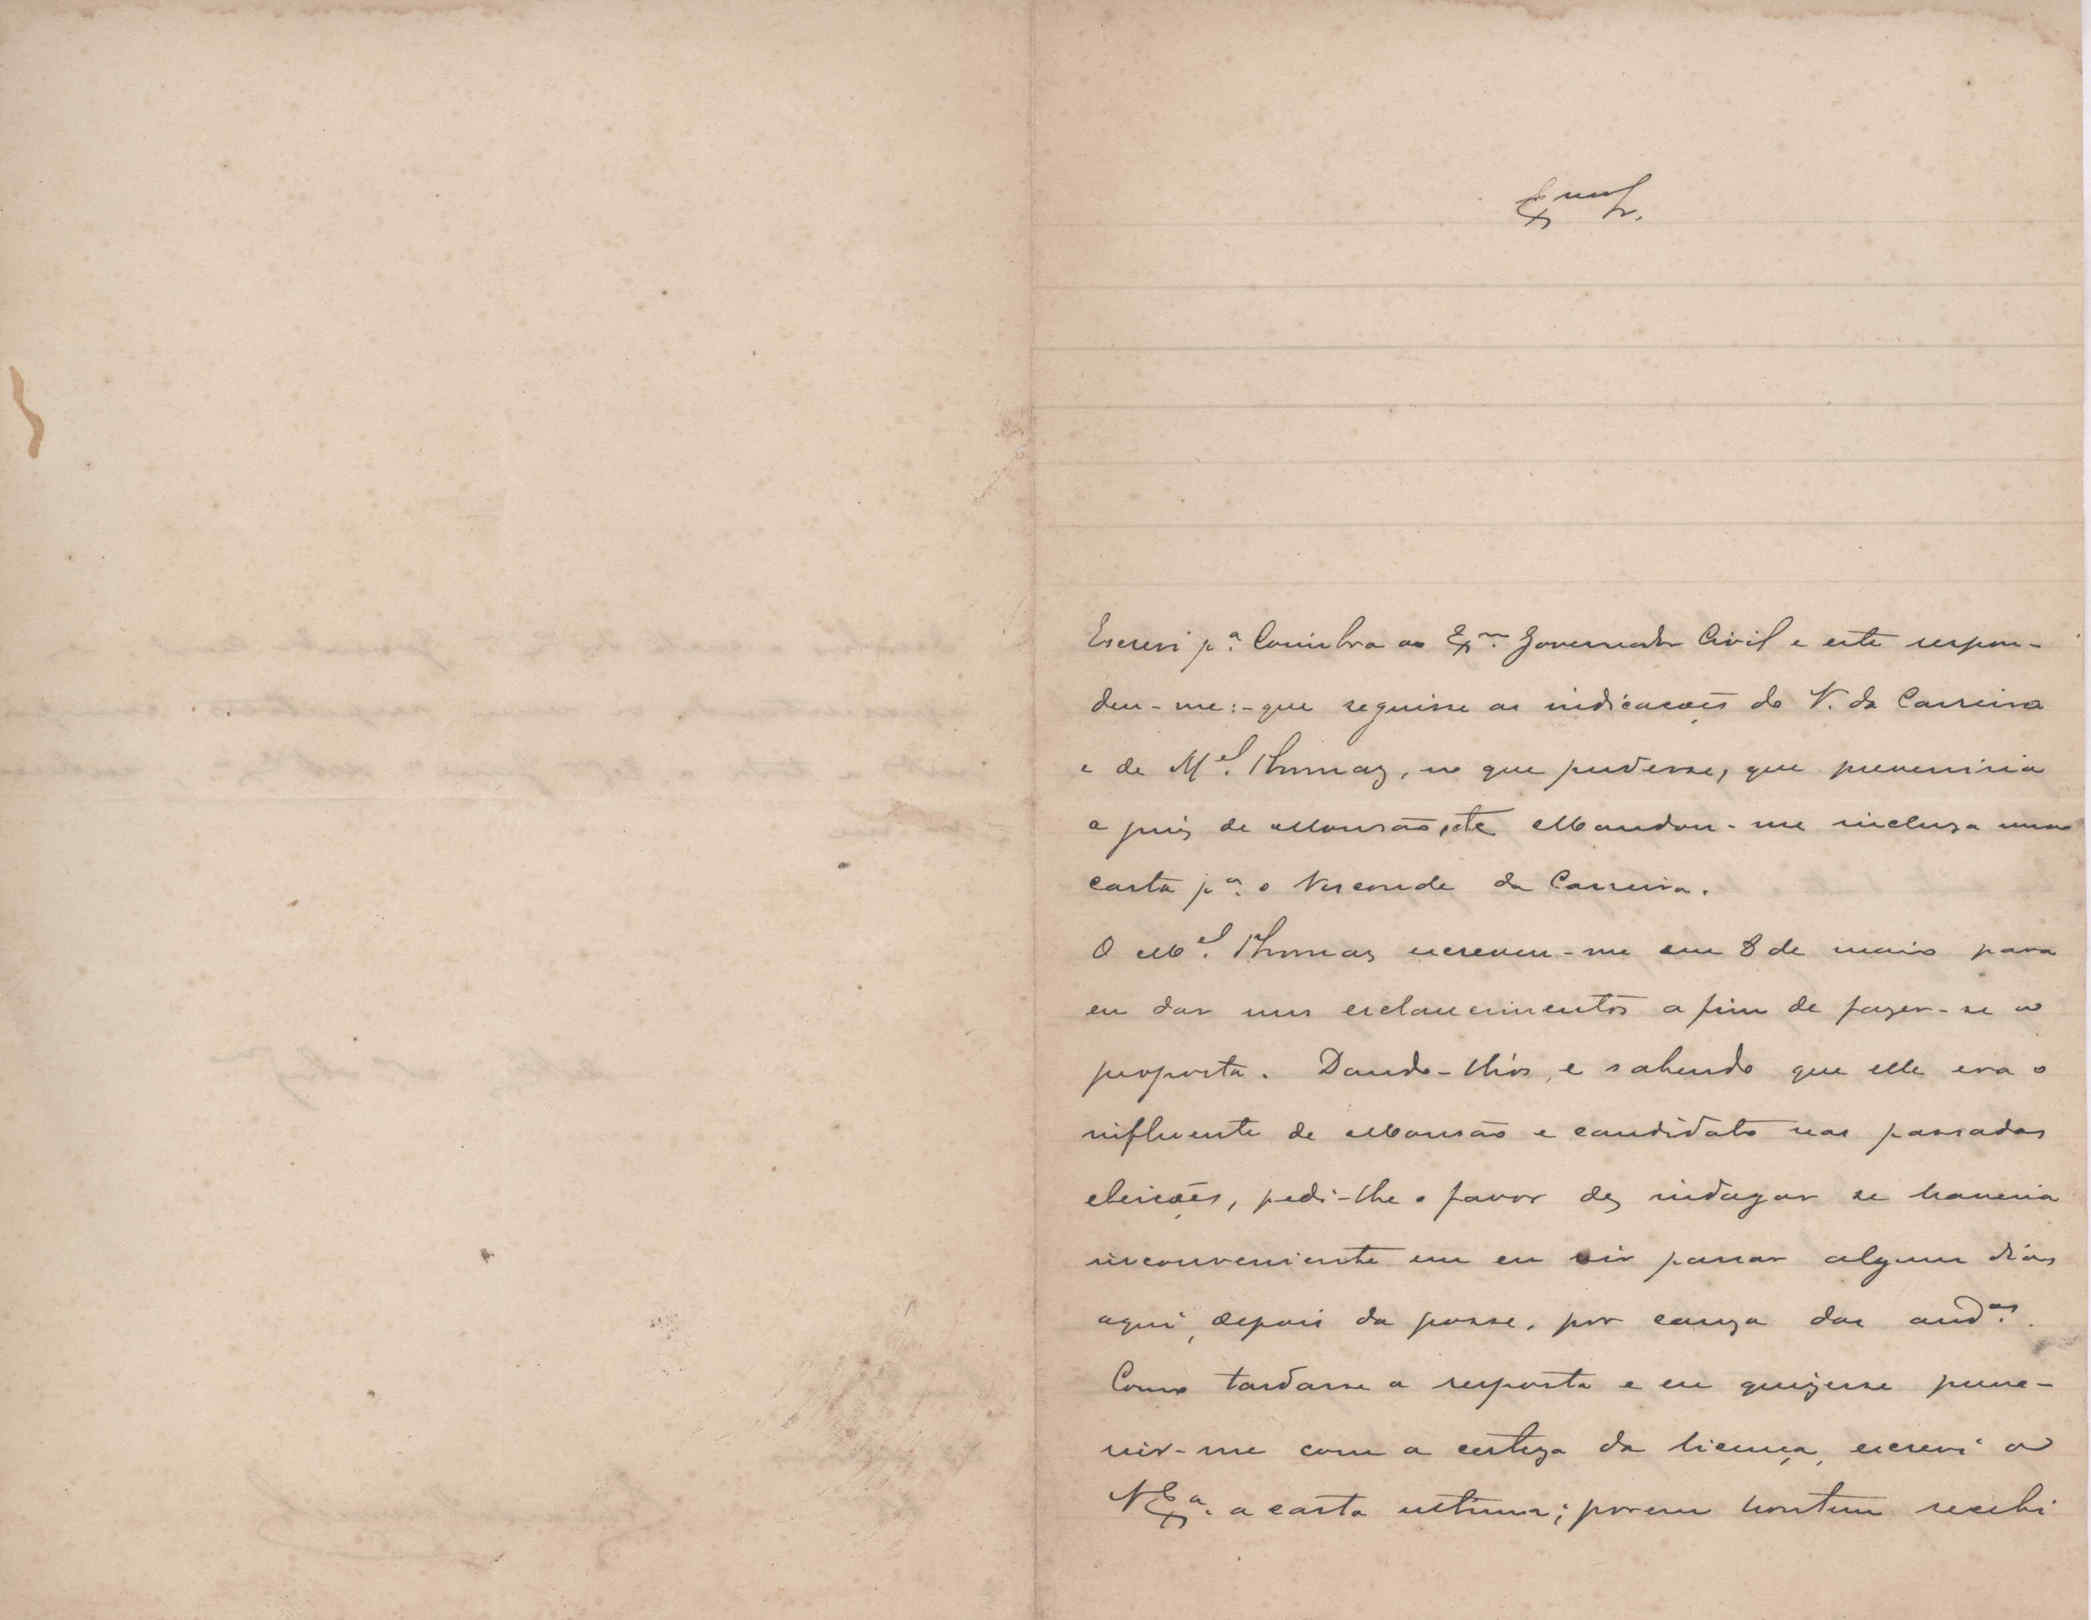 Exmo Sr.
Escrevi pª. Coimbra ao Exmo. Governador Civil e este respon-
deu-me:- que seguisse as indicações do V. da Carreira
e de Mel. Thomaz, no que pudesse, que preveniria
o juiz de Monsão, etc Mandou-me inclusa uma
carta pª. o Visconde da Carreira.
O Mel. Thomaz escreveu-me em 8 de maio para
eu dar uns esclarecimentos a fim de fazer-se a
proposta. Dando-lhos, e sabendo que elle era o
influente de Monsão e candidato nas passadas
eleições, pedi-lhe o favor de indagar se haveria
inconveniente em eu vir passar alguns dias
aqui, depois da posse, por causa das audas.
Como tardasse a resposta e eu quizesse preve-
nir-me com a certeza da licença, escrevi a
V Exª. a carta ultima; porem hontem recebi